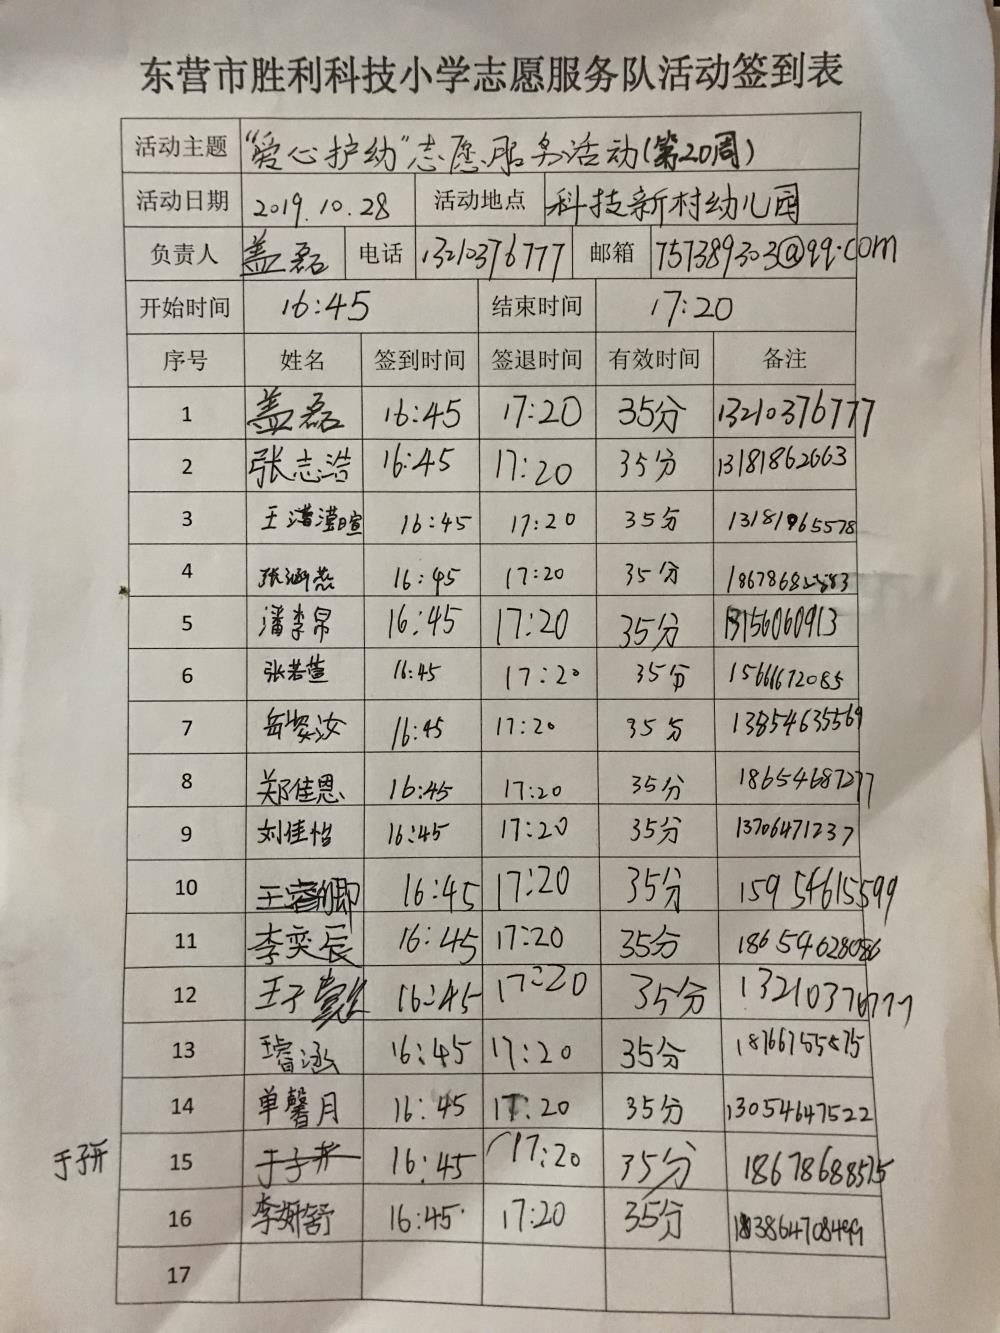 东营市胜利科技小学志愿服务队活动签到表
活动主题 "爱心护幼"志愿服务活动(第20周)
活动日期 2019.10.28 活动地点 科技新村幼儿园
负责人 盖磊 电话 13210376777 邮箱 757389303@qq.com
开始时间 16:45 结束时间 17:20
序号 姓名 签到时间 签退时间 有效时间 备注
1 盖磊 16:45 17:20 35分 13210376777
2 张志浩 16:45 17:20 35分 13181862663
3 16:45 17:20 35分 13181965578
4 张涵燕 16:45 17:20 35分
5 潘李帛 16:45 17:20 35分 13156060913
6 张若萱 16:45 17:20 35分 15666672085
7 岳姿汝 16:45 17:20 35分 13854635569
8 郑佳恩 16:45 17:20 35分 18654687277
9 刘佳怡 16:45 17:20 35分 13706471237
10 16:45 17:20 35分 15954615599
11 李奕辰 16:45 17:20 35分 18654628086
12 王子懿 16:45 17:20 35分 13210376777
13 16:45 17:20 35分 18766755575
14 单馨月 16:45 17:20 35分 13054647522
于子开 15 于子开 16:45 17:20 35分 18678688575
16 李妍舒 16:45 17:20 35分 13864708499
17